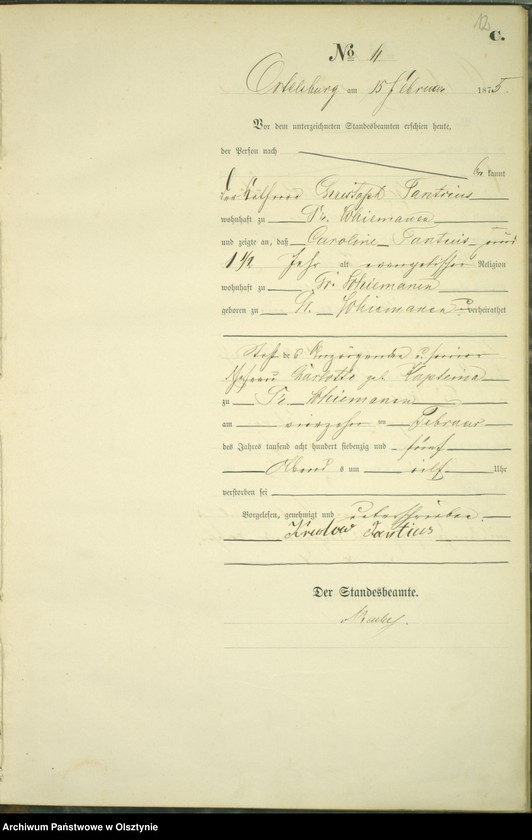 12
C.
No 11
Ortelsburg am 15 Februar 1875.
Vor dem unterzeichneten Standesbeamten erschien heute,
der Person nach
kannt
Christoph
wohnhaft zu Gr. Schiemanen
und zeigte an, daß Caroline
1½ Jahr alt evangelischer Religion
wohnhaft zu Gr. Schiemanen
geboren zu Gr. Schiemanen unverheirathet
Charlotte geb.
zu Gr. Schiemanen
am vierzehn ten Februar
des Jahres tausend acht hundert siebenzig und fünf
Abend s um eilf Uhr
verstorben sei
Vorgelesen, genehmigt und unterschrieben.
Der Standesbeamte.
Archiwum Państwowe w Olsztynie